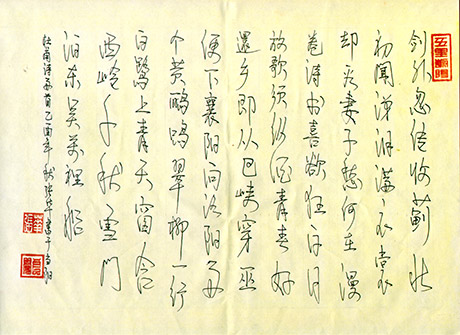 剑外忽传收蓟北
初闻涕泪满衣裳
却看妻子愁何在漫
卷诗书喜欲狂白日
放歌须纵酒青春好
還乡即从巴峡穿巫
便下襄阳向洛阳两
个黄鹂鸣翠柳一行
白鹭上青天窗含
西岭千秋雪门
泊东吴萬裡船
杜甫诗两首乙酉年秋